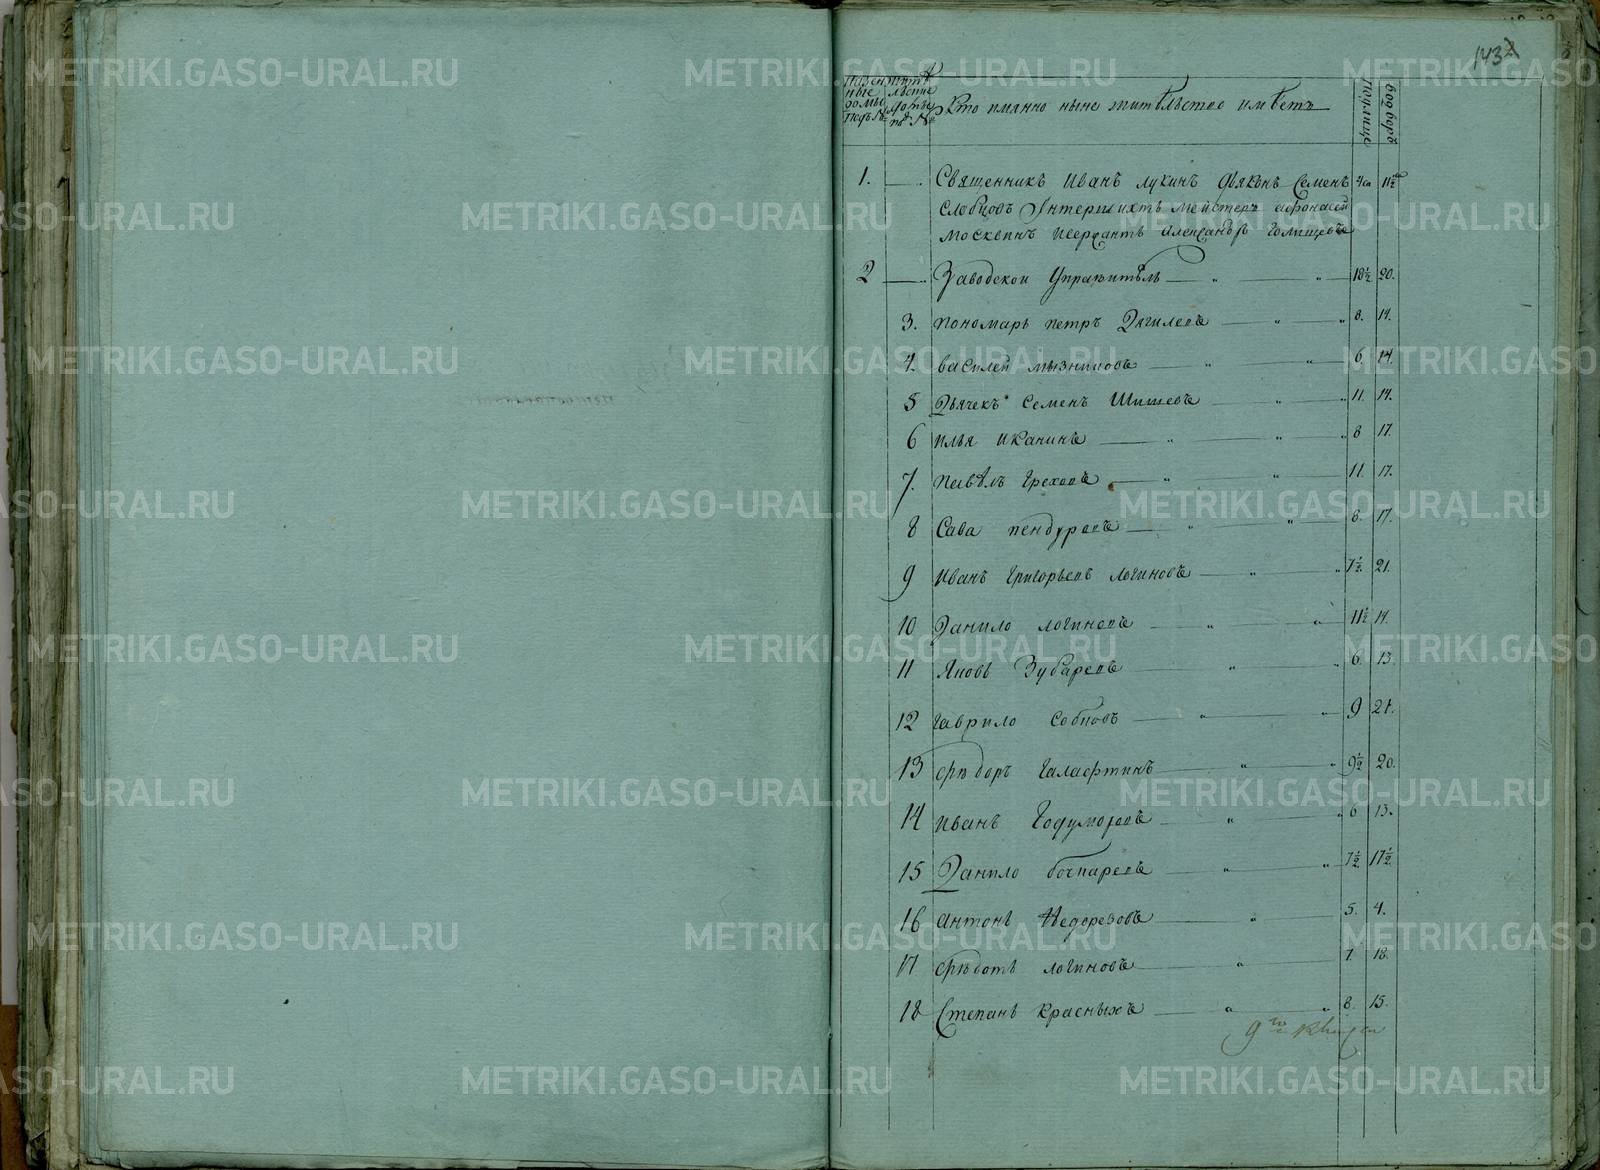 143
Казен
ные
домы
подъ №
Жит
льские
домы
подъ №
Кто имянно ныне жительство имѣетъ
поулице
вод воръ
1. Священникъ Иванъ Лукинъ дьяконъ Семенъ 7 са 11½
Слобцовъ Унтершихтъ мейстеръ Афонасей
Москвинъ исержантъ Александръ
2 Заводской Управитѣль 18½ 20.
3. пономарь петръ Дягилевъ 8. 14.
4. василей мызниковъ 6. 14.
5 Дьячекъ Семенъ Шишевъ 11. 14.
6 илья иканинъ 8 17.
7. павѣлъ греховъ 11. 17.
8 Сава пендуровъ 8. 17.
9 Иванъ григорьевъ логиновъ 7½ 21.
10 Данило логиновъ 11½ 14.
11 Яковъ Зубаревъ 6. 13.
12 гаврило собновъ 9 21.
13 ѳедоръ галафтинъ 9½ 20.
14 иванъ 6 13.
15 Данило бочкаревъ 7½ 17½
16 антонъ Недорезовъ 5. 4.
17 ѳедотъ логиновъ 7. 18.
18 Степанъ Красныхъ 8. 15.
METRIKI.GASO-URAL.RU